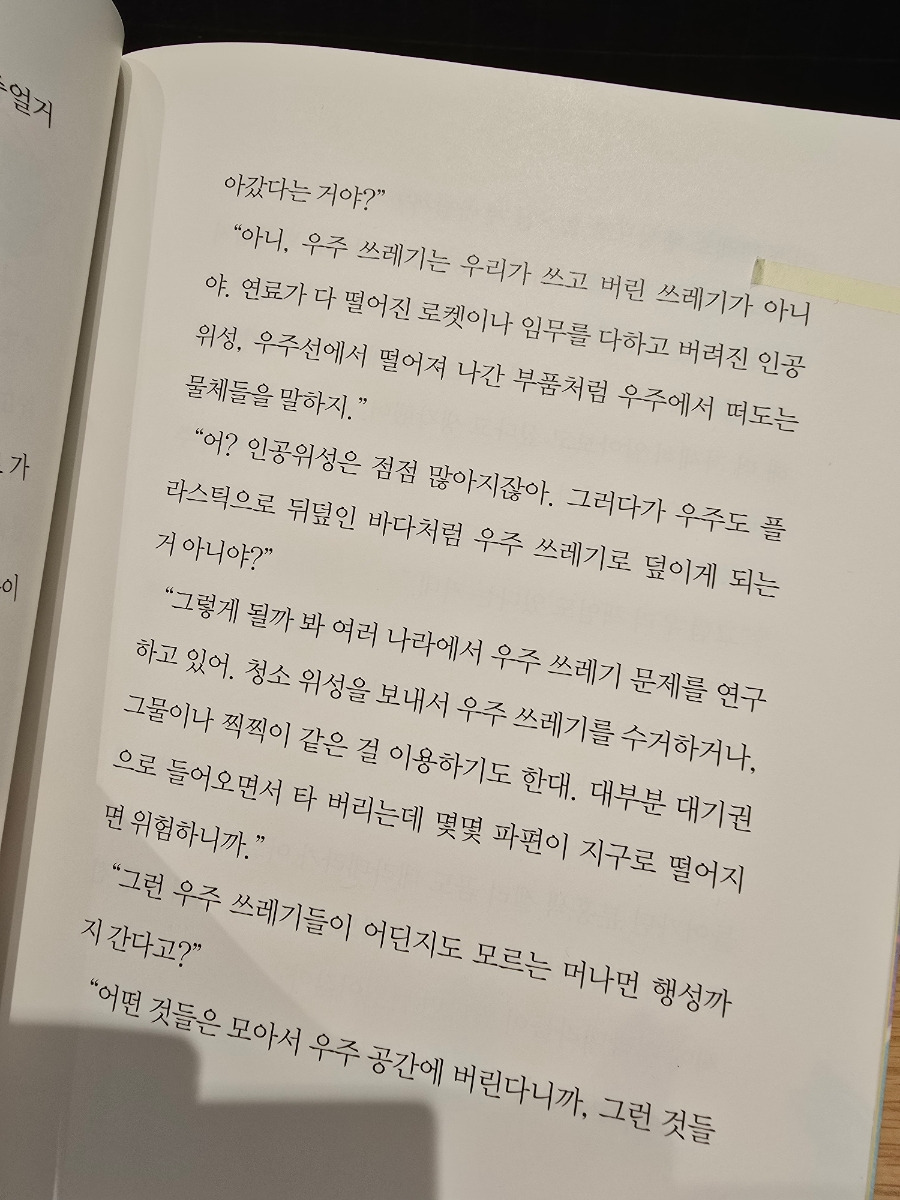 아갔다는 거야?”
“아니, 우주 쓰레기는 우리가 쓰고 버린 쓰레기가 아니
야. 연료가 다 떨어진 로켓이나 임무를 다하고 버려진 인공
위성, 우주선에서 떨어져 나간 부품처럼 우주에서 떠도는
물체들을 말하지.”
“어? 인공위성은 점점 많아지잖아. 그러다가 우주도 플
라스틱으로 뒤덮인 바다처럼 우주 쓰레기로 덮이게 되는
거 아니야?”
“그렇게 될까 봐 여러 나라에서 우주 쓰레기 문제를 연구
하고 있어. 청소 위성을 보내서 우주 쓰레기를 수거하거나,
그물이나 찍찍이 같은 걸 이용하기도 한대. 대부분 대기권
으로 들어오면서 타 버리는데 몇몇 파편이 지구로 떨어지
면 위험하니까.”
“그런 우주 쓰레기들이 어딘지도 모르는 머나먼 행성까
지 간다고?”
“어떤 것들은 모아서 우주 공간에 버린다니까, 그런 것들